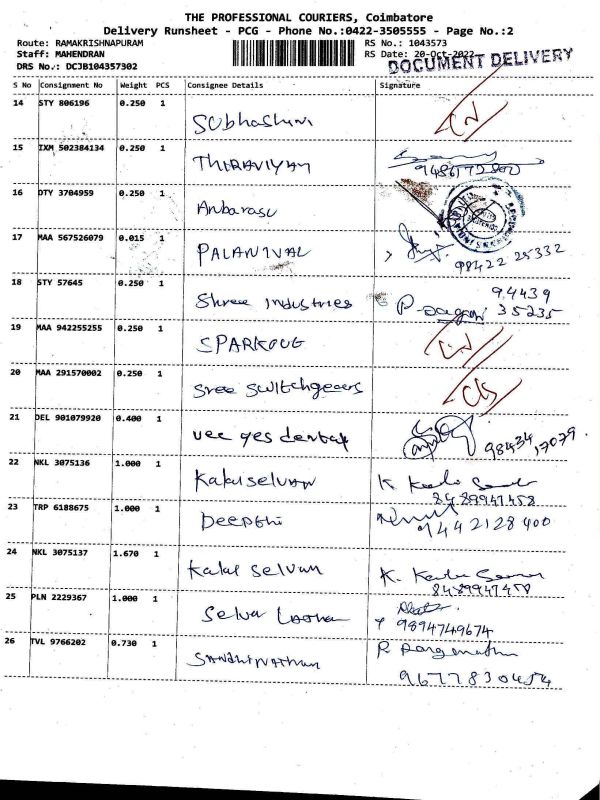 THE PROFESSIONAL COURIERS, Coimbatore
Delivery Runsheet - PCG - Phone No.:0422-3505555 - Page No.:2
Route: RAMAKRISHNAPURAM
RS No.: 1043573
Staff: MAHENDRAN
RS Date: 20-Oct-2022
DRS No.: DCJB104357302
DOCUMENT DELIVERY
S No Consignment No Weight PCS Consignee Details Signature
14 STY 806196 0.250 1
15 IXM 502384134 0.250 1 THIRAVIYAM
9486172800
16 DTY 3704959 0.250 1 Anbarasu
17 MAA 567526079 0.015 1 PALANIVAL
98422 25332
18 STY 57645 0.250 1 Shree Industries
94439
35235
19 MAA 942255255 0.250 1
20 MAA 291570002 0.250 1 Sree Switchgears
21 DEL 901079920 0.400 1 vee yes dental
98434 17079
22 NKL 3075136 1.000 1 Kalai selvan
8489947458
23 TRP 6188675 1.000 1 Deepthi
9442128400
24 NKL 3075137 1.670 1 Kalai selvan
8489947458
25 PLN 2229367 1.000 1 Selva
9894749674
26 TVL 9766202 0.730 1
9677830454